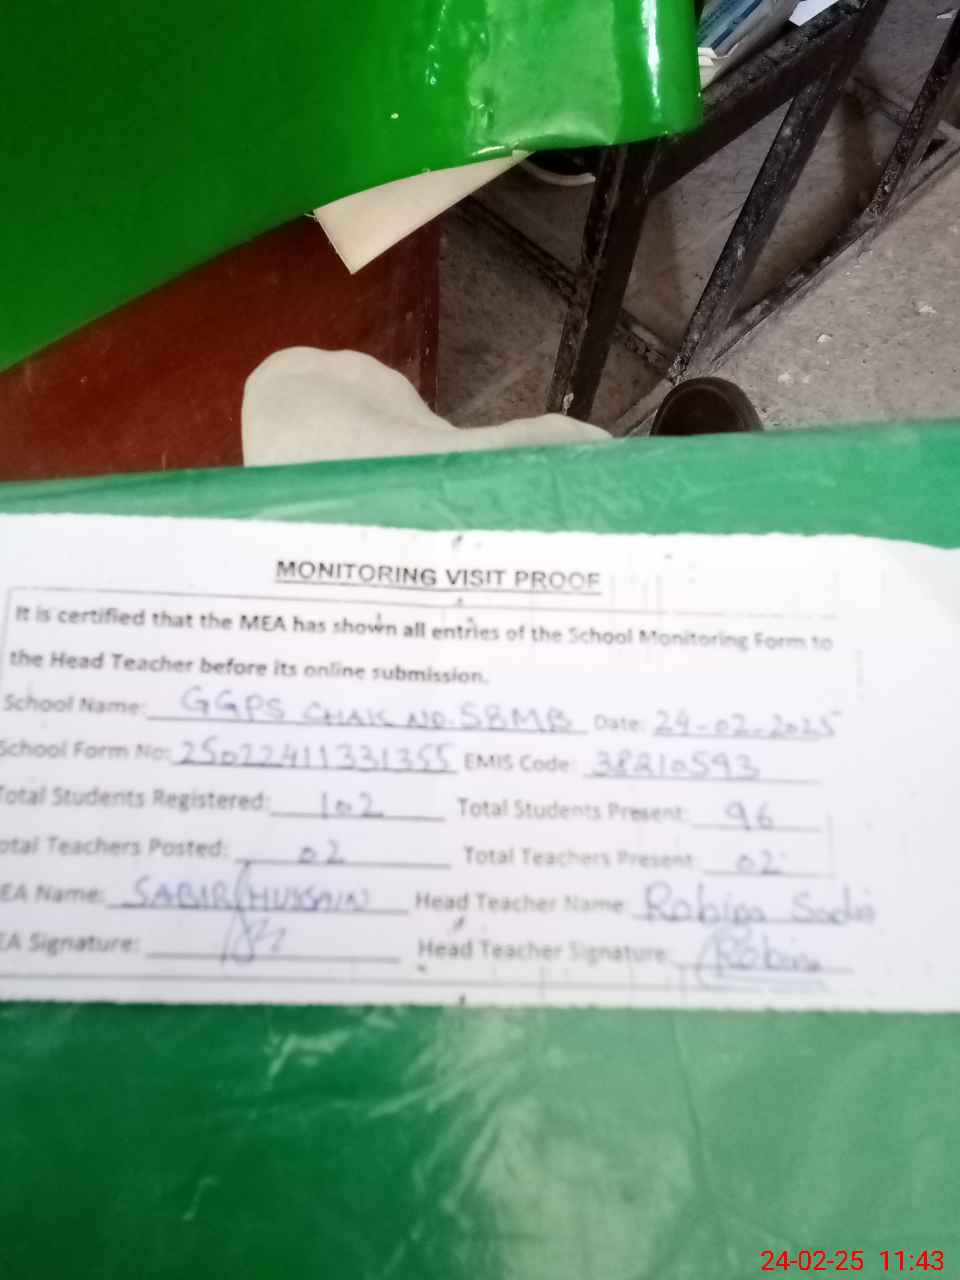 MONITORING VISIT PROOF
It is certified that the MEA has shown all entries of the School Monitoring Form to
the Head Teacher before its online submission.
School Name: GGPS CHAK NO.58MB Date: 24-02-2025
School Form No: 25022411331355 EMIS Code: 38210593
Total Students Registered: 102 Total Students Present: 96
otal Teachers Posted: 02 Total Teachers Present: 02
EA Name: SABIR HUSSAIN Head Teacher Name: Robina Sadiq
EA Signature: Head Teacher Signature: Robina
24-02-25 11:43